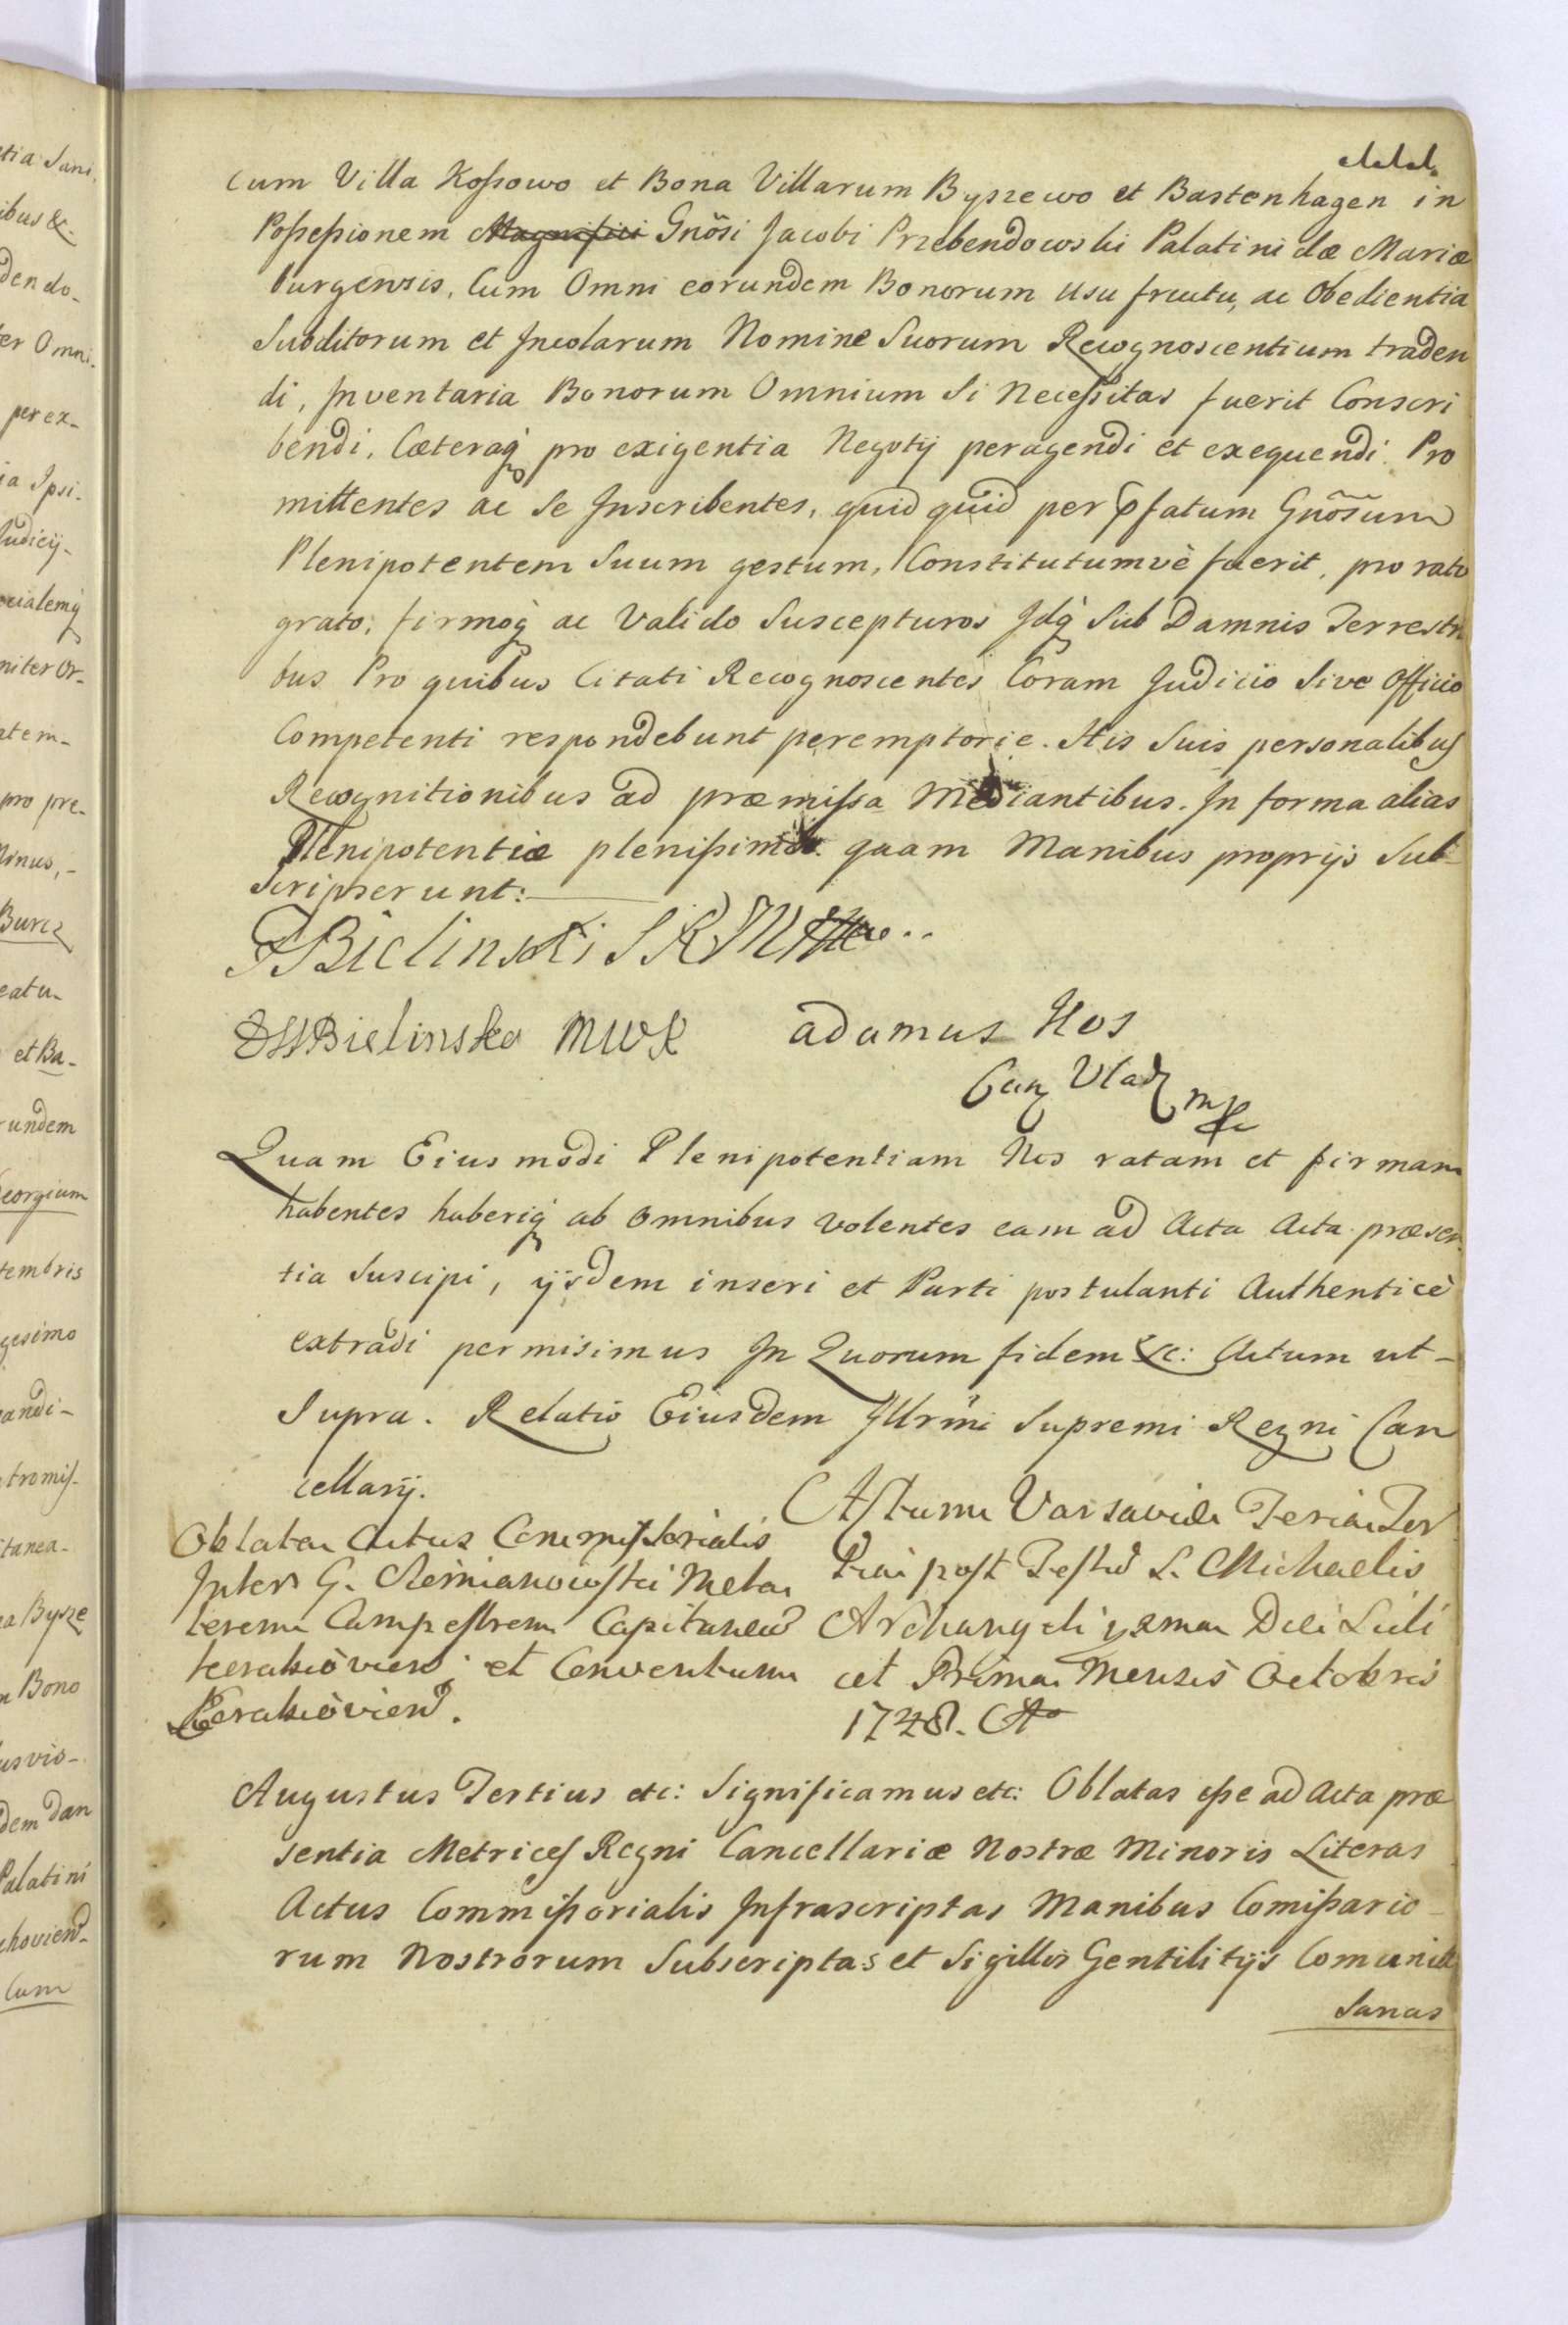 Cum Villa Kossowo et Bona Villarum Byszewo et Bastenhagen in
Possessionem Magnifici Gnõsi Jacobi Przebendowski Palatinidæ Mariæ
burgensis, Cum Omni eorundem Bonorum Usu fructu, ac Obedientia
Subditorum et Incolarum Nomine Suorum Recognoscentium traden
di, Inventaria Bonorum Omnium Si Necessitas fuerit Conscri
bendi, Cæteraq̀ pro exigentia Negotij peragendi et exequendi. Pro
mittentes ac Se Inscribentes, quid quid per p̃fatum Gnõsum
Plenipotentem Suum gestum, Constitutumvè fuerit, pro rato
grato, firmoq̀ ac Valido Suscepturos Idq̀ Sub Damnis Terrestri
bus Pro quibus Citati Recognoscentes Coram Judicio Sive Officio
Competenti respondebunt peremptorie. His Suis personalibus
Recognitionibus ad præmissa Mediantibus. In forma alias
Plenipotentiæ plenissimæ quam Manibus proprijs Sub-
scripserunt:
FBielinski
Bielinska MWK adamus Nos
Canz Vlad mp
Quam Eiusmodi Plenipotentiam Nos ratam et firmam
habentes haberiq̀ ab omnibus volentes eam ad Acta Acta præsen
tia Suscipi, ijsdem inseri et Parti postulanti Authenticè
extradi permisimus In Quorum fidem &c: Actum ut-
Supra. Relatio Eiusdem Illrm̃i Supremi Regni Can
cellarij.
Oblata Actus Commissorialis
Inter G.
terem Campestrem Capitaneũ
et Conventum
Actum Varsaviæ Feria Ter
tia post Festũ S. Michaelis
Archangeli Die Scili
cet Prima Mensis Octobris
1748. Ao
Augustus Tertius etc: Significamus etc: Oblatas esse ad Acta præ
sentia Metrices Regni Cancellariæ Nostræ Minoris Literas
Actus Commissorialis Infrascriptas Manibus Comissario-
rum Nostrorum Subscriptas et Sigillis Gentilitijs Comunitas
Sanas